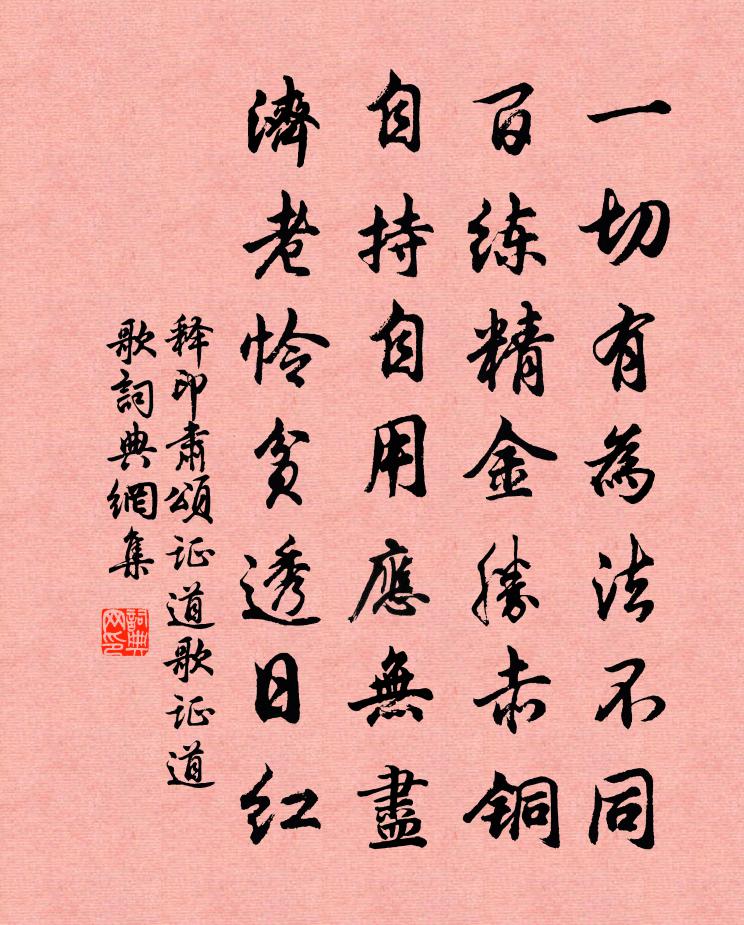 一切有為法不同
百练精金勝赤铜
自持自用應無盡
濟老怜贫透日红
释印肃頌证道歌证道
歌詞典網集
詞典
网印